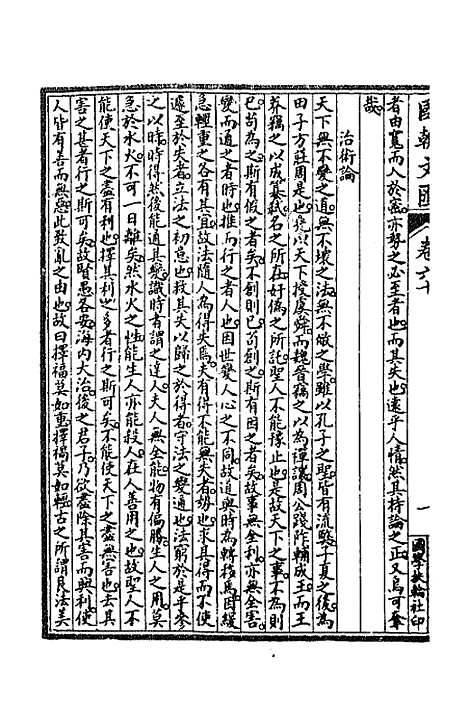 國朝文匯 卷六十 一 國學扶輪社印
者由寬而入於密亦勢之必至者也而其失也遠乎人情然其持論之正又烏可棄
哉
治術論
天下無不變之道無不壞之法無不敝之學雖以孔子之聖皆有流弊子夏之後為
田子方莊周是也堯以天下授虞舜而魏晉竊之以為禪讓周公踐阼輔成王而王
莽竊之以成篡弒名之所在好偽之所託聖人不能豫止也是故天下之事不為則
已苟為之斯有假之者矣不創則已苟創之斯有因之者矣故事無全利亦無全害
變而通之者時也推而行之者人也因世變人心之不同故道與時為轉移焉因緩
急輕重之各有其宜故法隨人為得失焉夫有得不能無失者勢也求其得而不使
遽至於失者立法之初意也救其失以歸之於得者守法之變通也法窮於是乎參
之以時時得然後能適其變識時者謂之達人夫人無全能物有偏勝生人之用莫
急於水火不可一日離矣然水火之性能生人亦能殺人在人善用之也故聖人不
能使天下之盡有利也擇其利之多者行之斯可矣不能使天下之盡無害也去其
害之甚者行之斯可矣故賢愚各安海內大治後之君子乃欲盡除其害而興利使
人皆有善而無惡此致亂之由也故曰擇福莫如重擇禍莫如輕古之所謂良法美